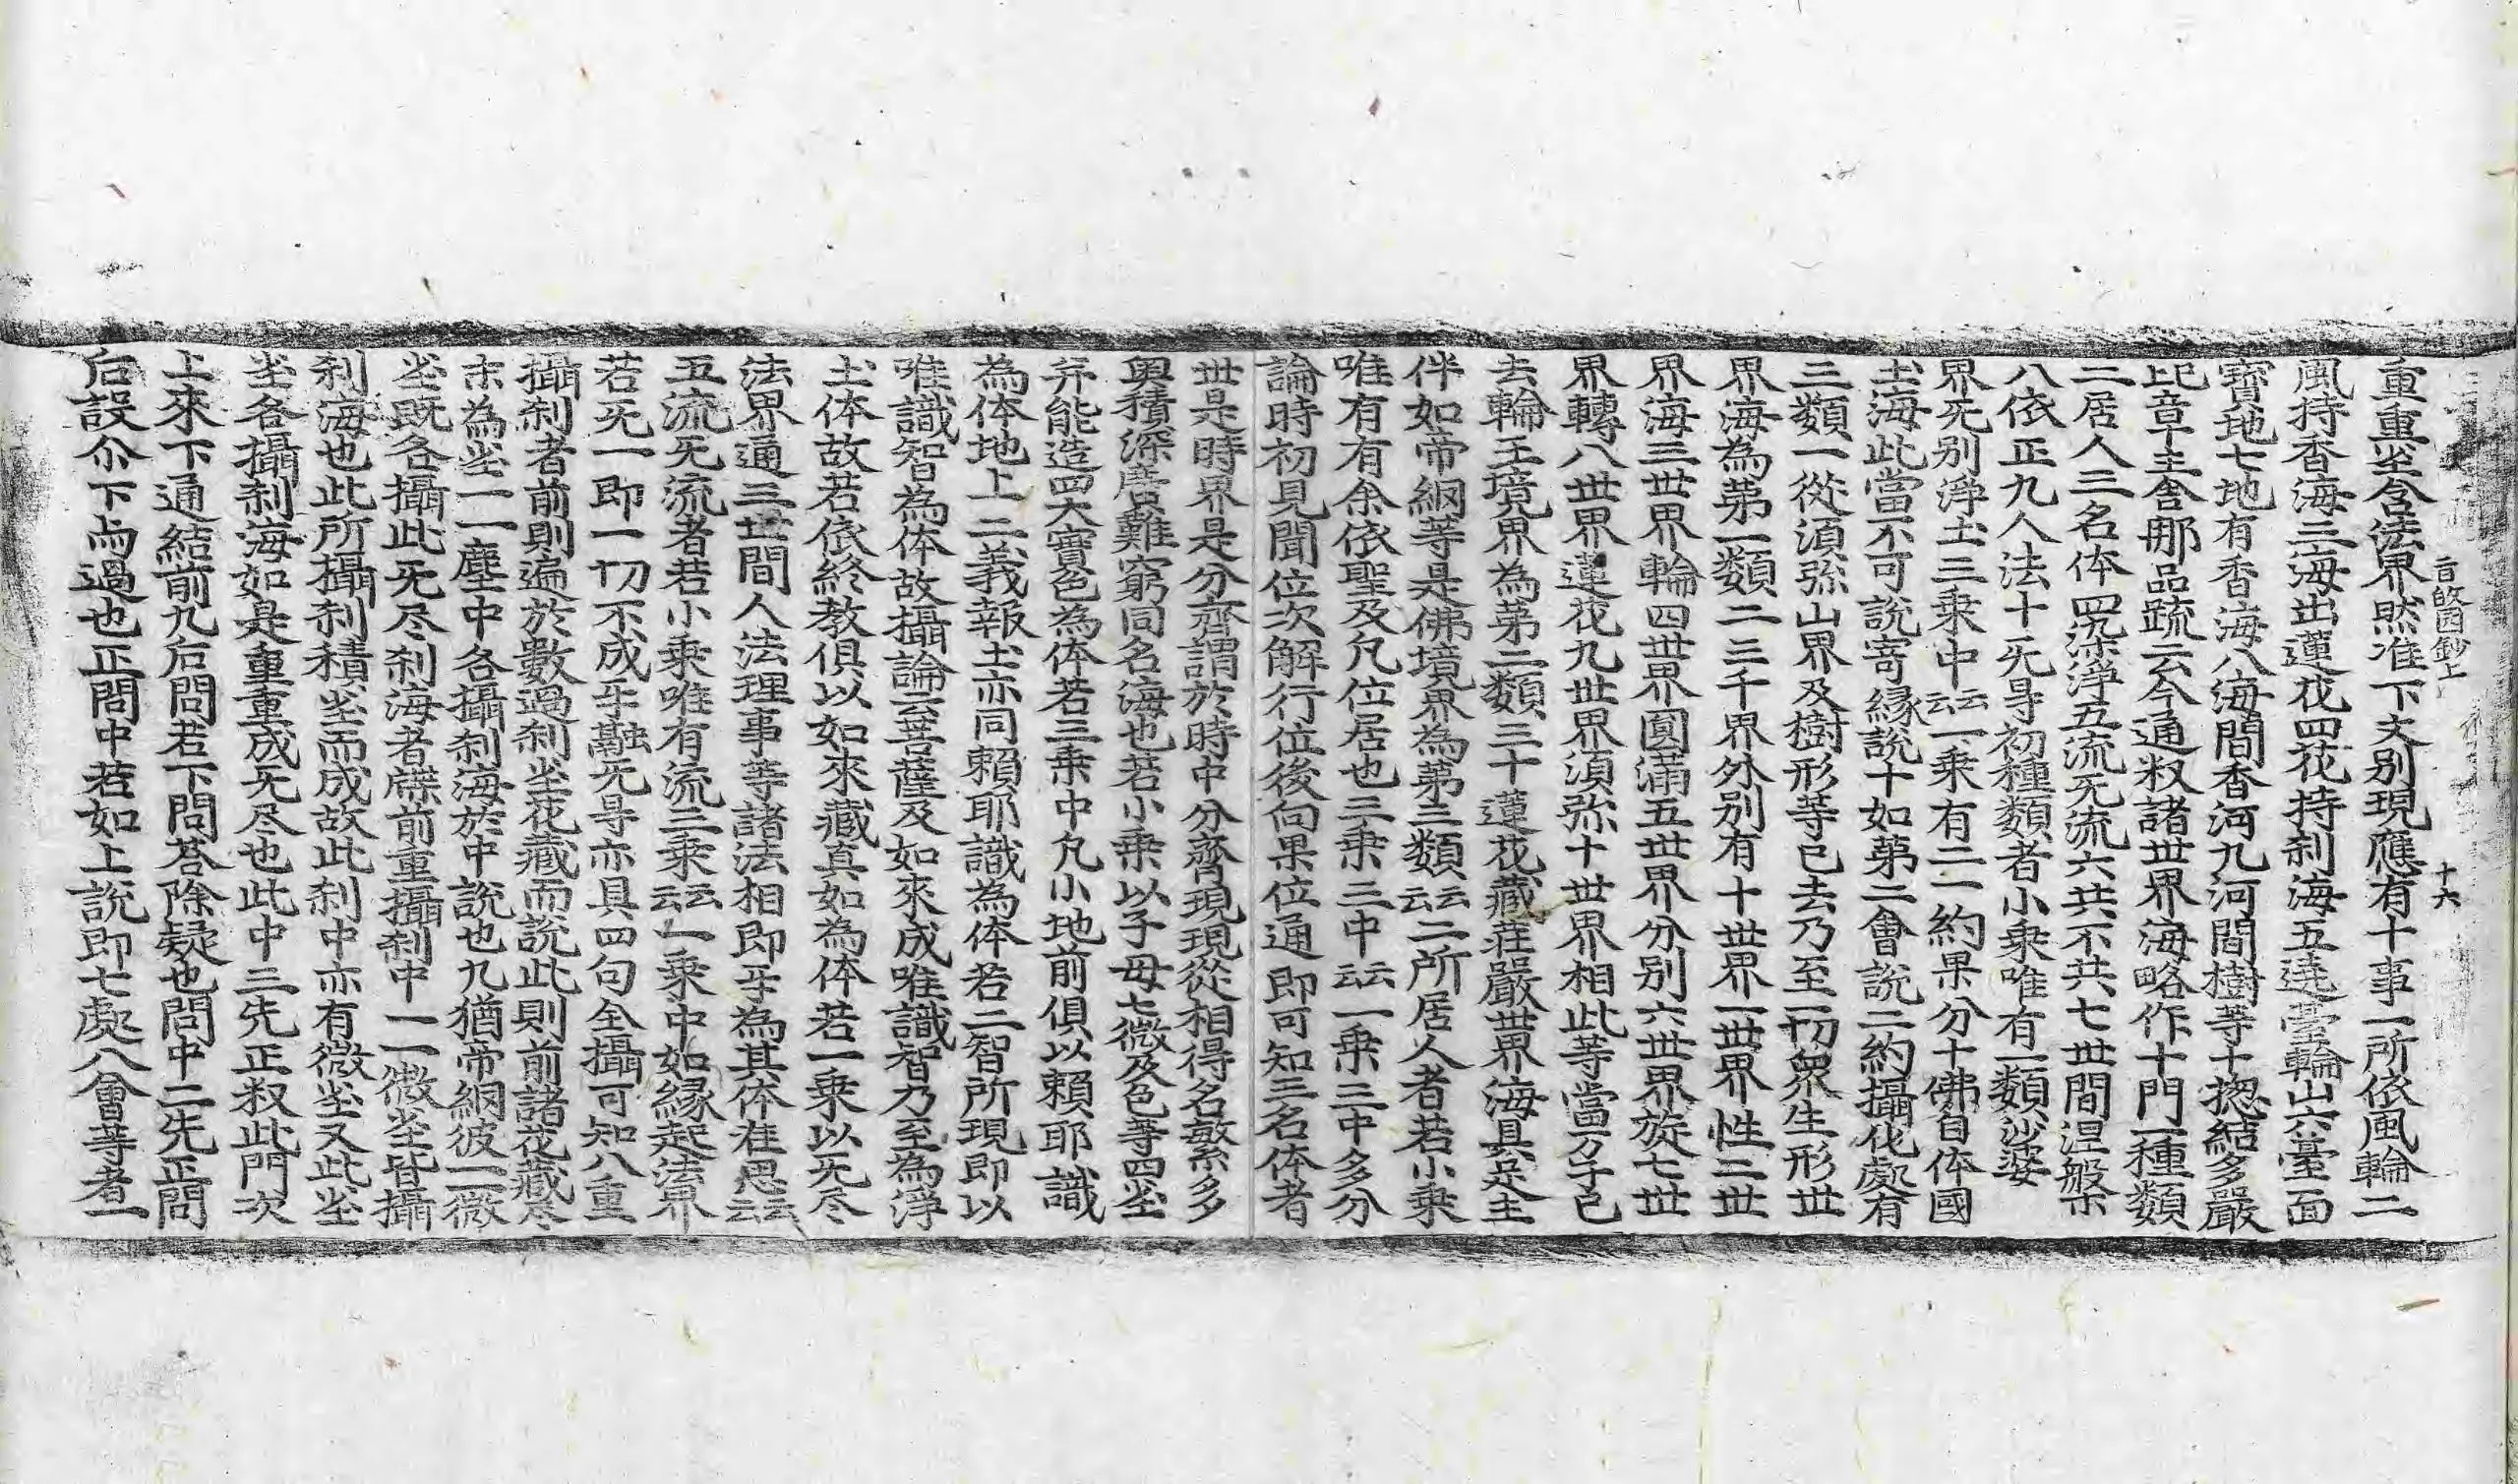 旨敀因鈔上
十六
重重坐含法界然准下文別現應有十事一所依風輪二
風持香海三海出蓮花四花持刹海五遶臺輪山六臺面
寶地七地有香海八海間香河九河間樹等十揔結多嚴
記章主舍那品䟽云今通叙諸世界海略作十門一種類
二居人三名体四染淨五流无流六共不共七世間涅般木
八依正九人法十无㝵初種類者小乘唯有一類娑婆
界无別淨土三乘中云云一乘有二一約果分十佛自体國
土海此當不可說寄緣說十如第二會說二約攝化處有
三類一從須弥山界及樹形等已去乃至一切衆生形世
界海為第一類二三千界外別有十世界一世界性二世
界海三世界輪四世界圓滿五世界分別六世界旋七世
界轉八世界蓮花九世界須弥十世界相此等當万子已
去輪王境界為第二類三十蓮花藏莊嚴世界海具足主
伴如帝網等是佛境界為第三類云云二所居人者若小乘
唯有有余依聖及凡位居也三乘三中云云一乘三中多分
論時初見聞位次解行位後向果位通即可知三名体者
世是時界是分齊謂於時中分齊現現從相得名繁多
奧積深廣難窮同名海也若小乘以子母七微及色等四坐
并能造四大實色為体若三乘中凡小地前俱以賴耶識
為体地上二義報土亦同賴耶識為体若二智所現即以
唯識智為体故攝論云菩薩及如來成唯識智乃至為淨
土体故若依終教俱以如來藏真如為体若一乘以无尽
法界通三世間人法理事等諸法相即乎為其体准思云云
五流无流者若小乘唯有流三乘云云一乘中如緣起法界
若无一即一切不成乎融无㝵亦具四句全攝可知八重
攝刹者前則遍於數過刹坐花藏而說此則前諸花藏尽
末為坐一一塵中各攝刹海於中說也九猶帝網彼一一微
坐既各攝此无尽刹海者牒前重攝刹中一一微坐皆攝
刹海也此所攝刹積坐而成故此刹中亦有微坐又此坐
坐各攝刹海如是重重成无尽也此中三先正叙此門次
上來下通結前九后問若下問荅除疑也問中二先正問
后設尒下局過也正問中若如上說即七處八會等者一